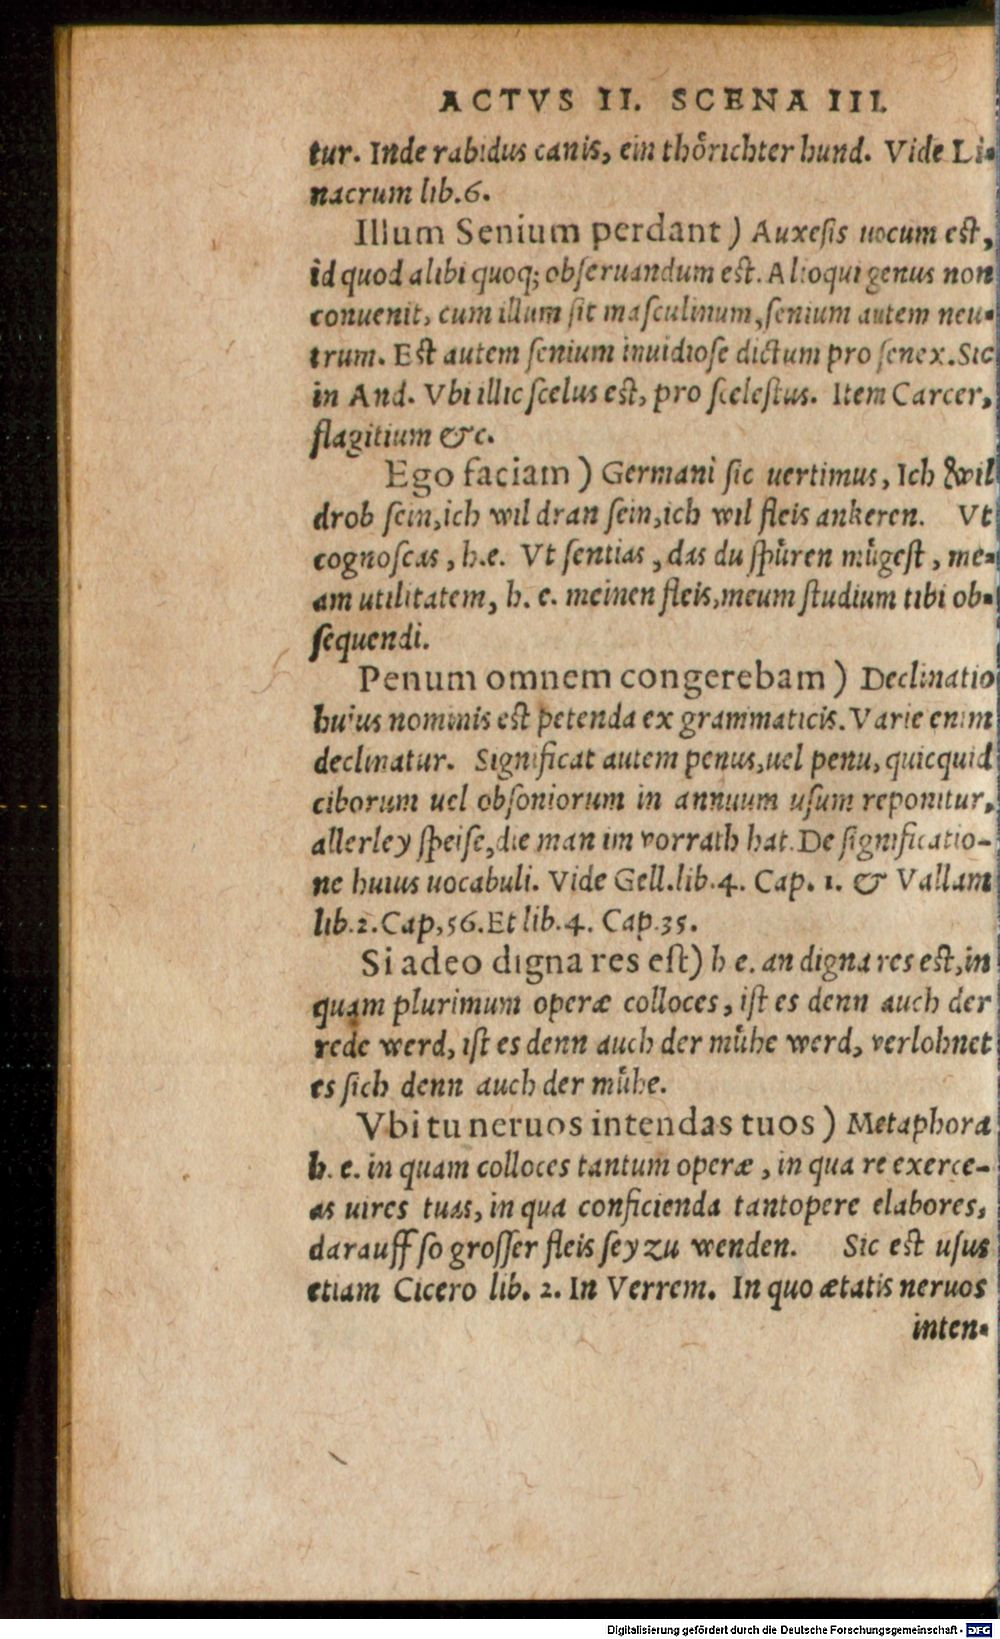 ACTVS II. SCENA III.
tur. Inde rabidus canis, ein thoͤrichter hund. Vide Li-
nacrum lib.6.
Illum Senium perdant ) Auxeſis uocum eſt,
id quod alibi quoq; obſeruandum eſt. Alioqui genus non
conuenit, cum illum ſit maſculinum, ſenium autem neu-
trum. Eſt autem ſenium inuidioſe dictum pro ſenex. Sic
in And. Vbi illic ſcelus eſt, pro ſceleſtus. Item Carcer,
flagitium &c.
Ego faciam ) Germani ſic uertimus, Ich wil
drob ſein, ich wil dran ſein, ich wil fleis ankeren. Vt
cognoſcas, h.e. Vt ſentias, das du ſpuͤren muͤgeſt, me-
am utilitatem, h. e. meinen fleis, meum ſtudium tibi ob-
ſequendi.
Penum omnem congerebam ) Declinatio
huius nominis eſt petenda ex grammaticis. Varie enim
declinatur. Significat autem penus, uel penu, quicquid
ciborum uel obſoniorum in annuum uſum reponitur,
allerley ſpeiſe, die man im vorrath hat. De significatio-
ne huius uocabuli. Vide Gell. lib.4. Cap. 1. & Vallam
lib.2. Cap,56. Et lib.4. Cap.35.
Si adeo digna res eſt) h e. an digna res eſt, in
quam plurimum operæ colloces, iſt es denn auch der
rede werd, iſt es denn auch der muͤhe werd, verlohnet
es ſich denn auch der muͤhe.
Vbi tu neruos intendas tuos ) Metaphora
h. e. in quam colloces tantum operæ, in qua re exerce-
as uires tuas, in qua conficienda tantopere elabores,
darauff ſo groſſer fleis ſey zu wenden. Sic eſt uſus
etiam Cicero lib. 2. In Verrem. In quo ætatis neruos
inten-
Digitalisierung gefördert durch die Deutsche Forschungsgemeinschaft - DFG